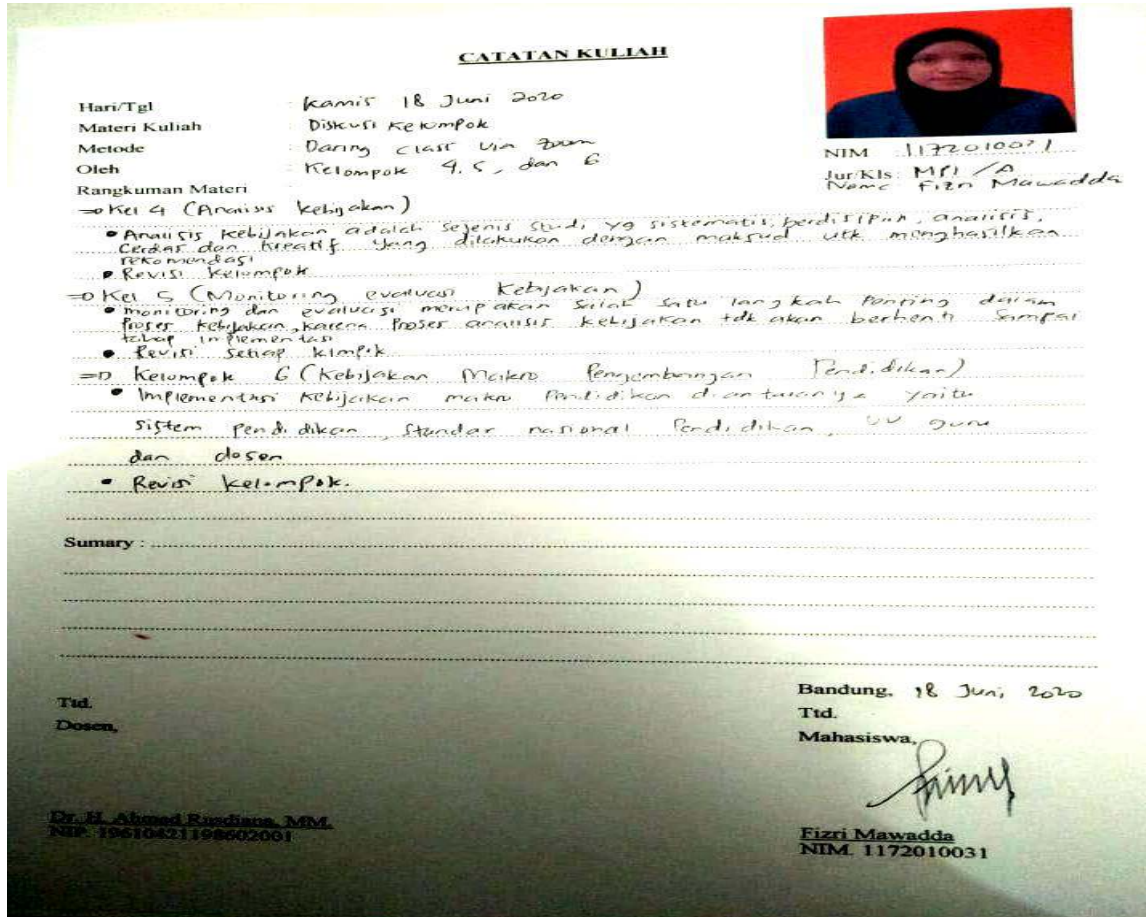 CATATAN KULIAH
Hari/Tgl : Kamis 18 Juni 2020
Materi Kuliah : Diskusi Kelompok
Metode : Daring class via zoom
Oleh : Kelompok 4.5, dan 6
Rangkuman Materi :
NIM : 1172010031
Jur/Kls : MPI /A
Nama Fizri Mawadda
=> Kel 4 (Analisis Kebijakan)
• Analisis Kebijakan adalah sejenis studi yg sistematis, berdisiplin, analitis,
Cerdas dan kreatif yang dilakukan dengan maksud utk menghasilkan
rekomendasi
• Revisi Kelompok
=> Kel 5 (Monitoring evaluasi Kebijakan)
• monitoring dan evaluasi merupakan salah satu langkah Penting dalam
Proses Kebijakan, karena Proses analisis kebijakan tdk akan berhenti Sampai
tahap implementasi
• Revisi setiap klmpk
=> Kelompok 6 (Kebijakan Makro Pengembangan Pendidikan)
• Implementasi Kebijakan makro Pendidikan diantaranya yaitu
sistem pendidikan, Standar nasional Pendidikan, UU guru
dan dosen
• Revisi kelompok.
Sumary :
Bandung, 18 Juni 2020
Ttd.
Dosen,
Ttd.
Mahasiswa,
Dr. H. Ahmad Rusdiana, MM.
NIP. 19610421198602001
Fizri Mawadda
NIM. 1172010031